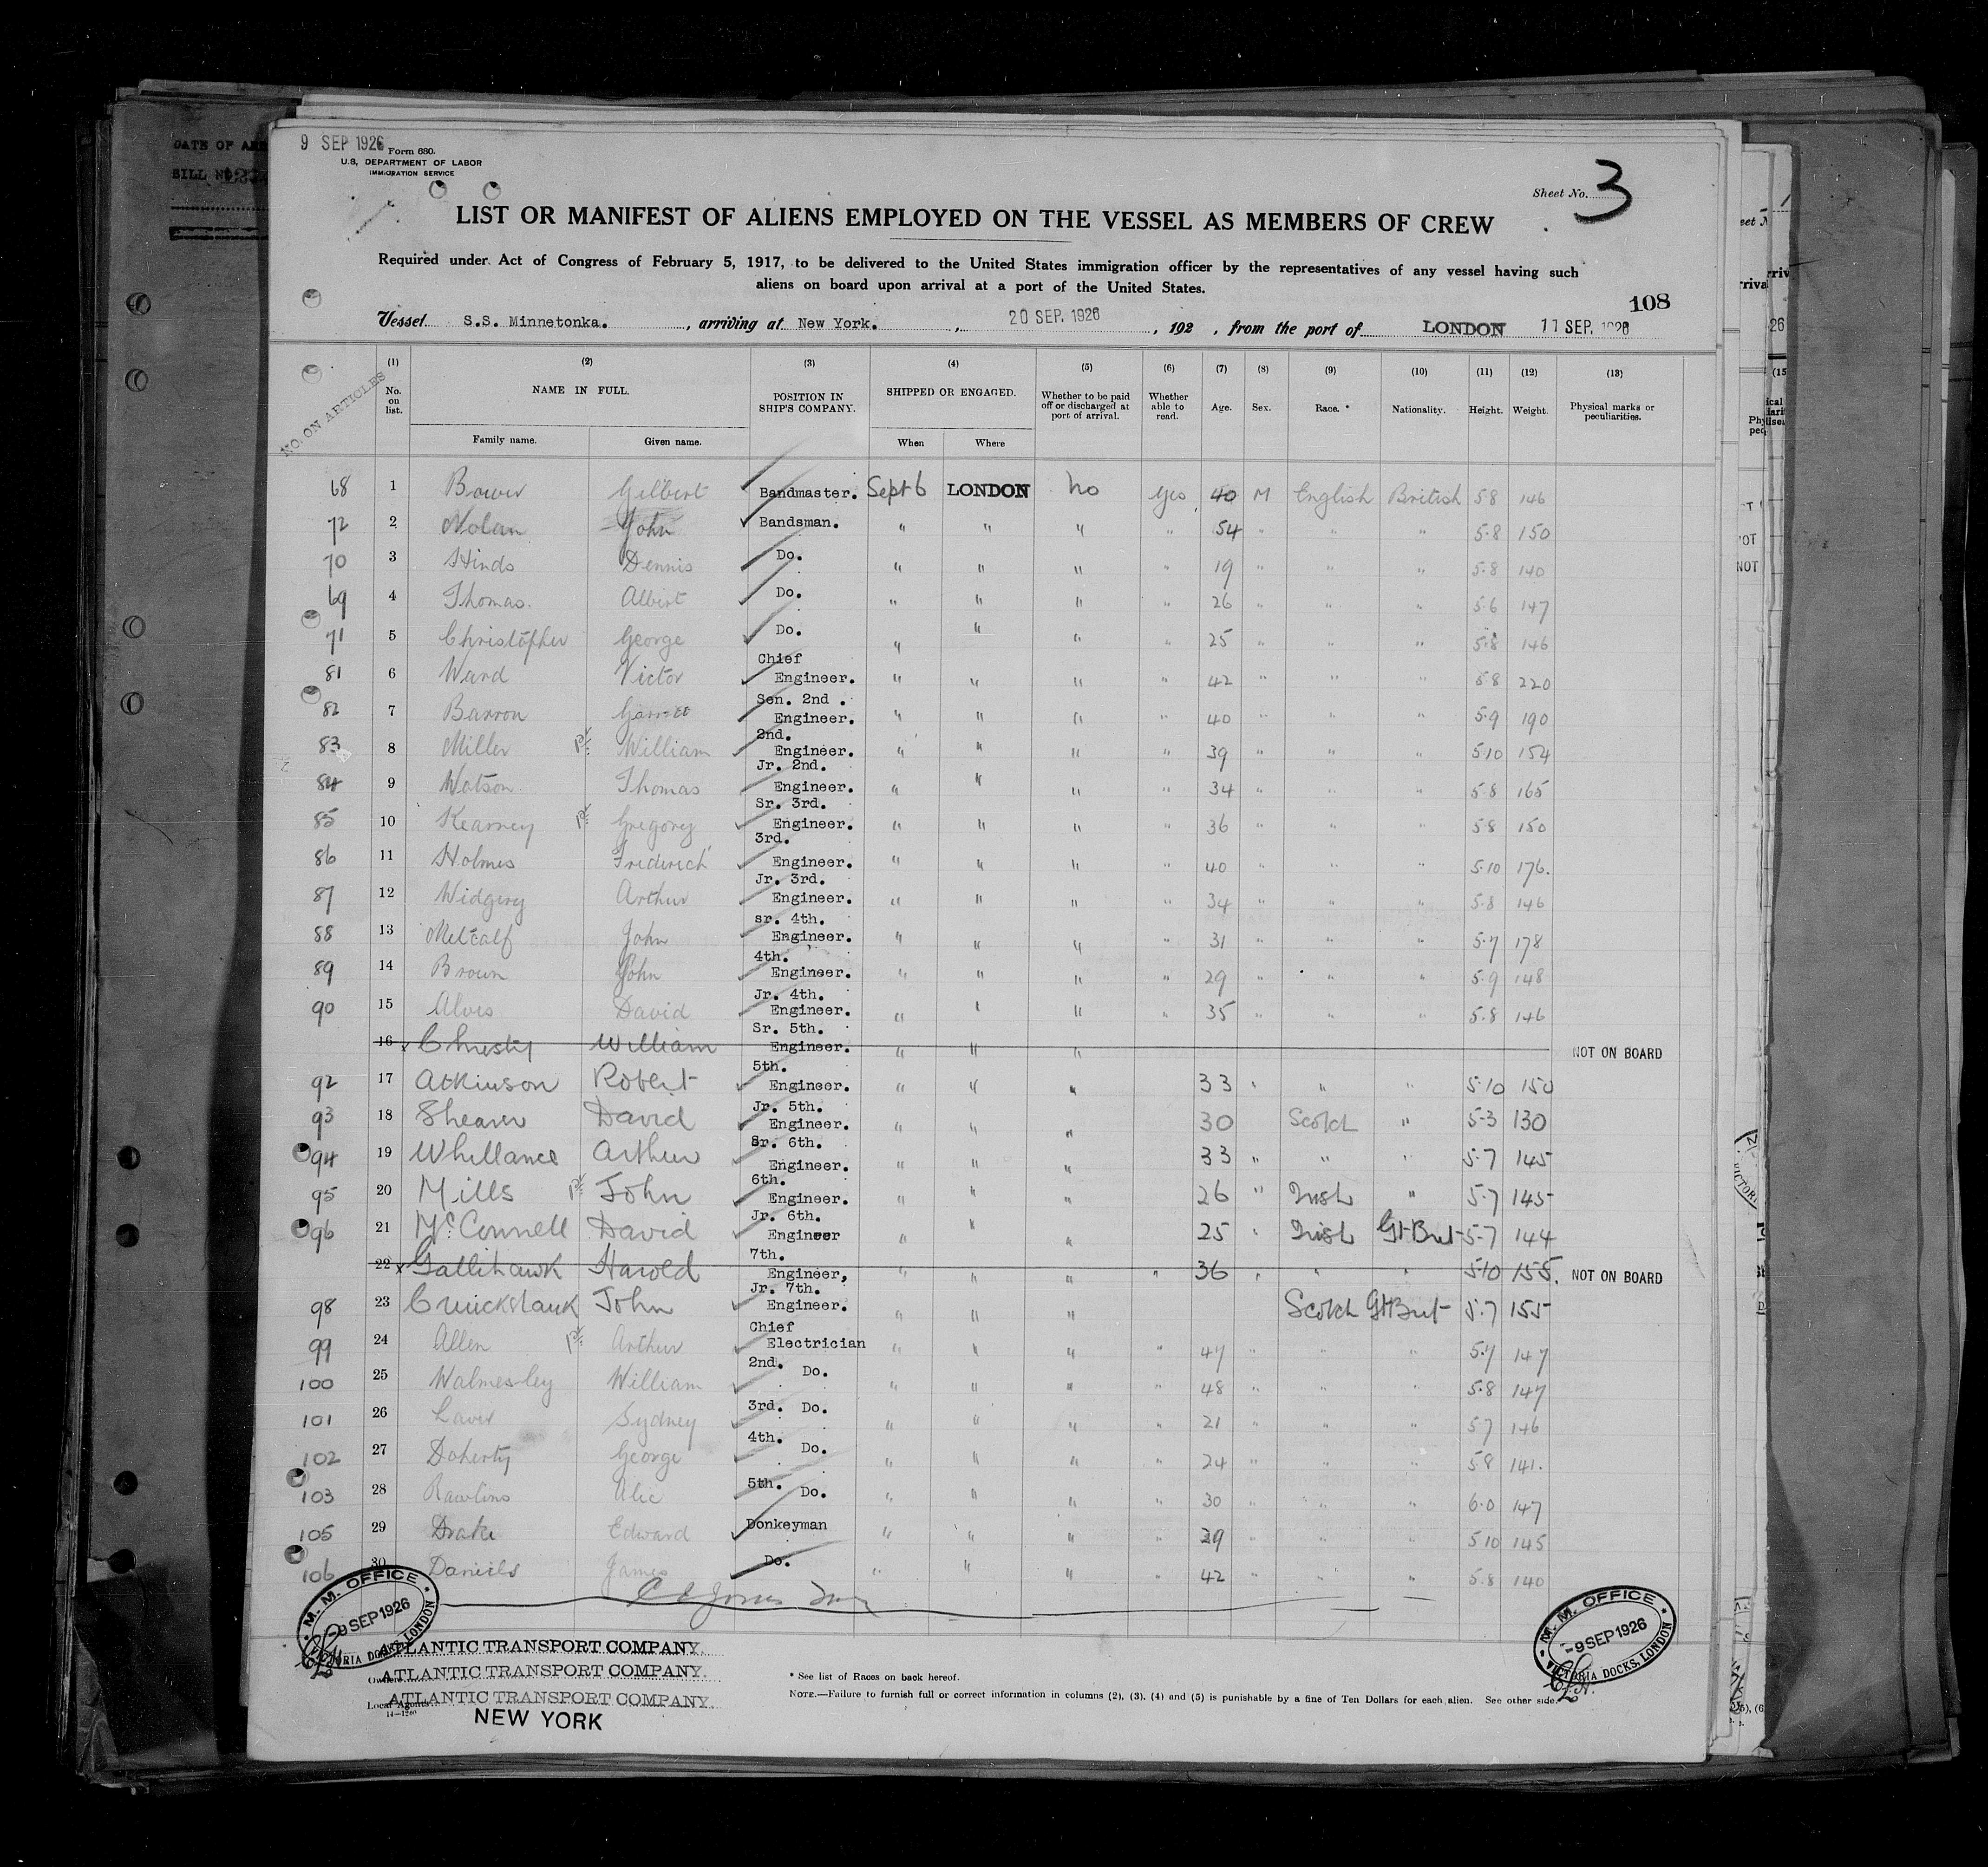 DATE OF
BILL NO
9 SEP 1926
Form 680.
U.S. DEPARTMENT OF LABOR
IMMIGRATION SERVICE
Sheet No. 3
LIST OR MANIFEST OF ALIENS EMPLOYED ON THE VESSEL AS MEMBERS OF CREW
Required under Act of Congress of February 5, 1917, to be delivered to the United States immigration officer by the representatives of any vessel having such
aliens on board upon arrival at a port of the United States.
108
Vessel S.S. Minnetonka. , arriving at New York. , 20 SEP. 1926 , 192 , from the port of LONDON 11 SEP. 1926
NO. ON ARTICLES
(1) (2) (3) (4) (5) (6) (7) (8) (9) (10) (11) (12) (13)
No. on list. NAME IN FULL. POSITION IN SHIP'S COMPANY. SHIPPED OR ENGAGED. Whether to be paid off or discharged at port of arrival. Whether able to read. Age. Sex. Race. * Nationality. Height. Weight. Physical marks or peculiarities.
Family name. Given name. When Where
68 1 Bower Gilbert Bandmaster. Sept 6 LONDON no Yes 40 M English British 5 8 146
72 2 Nolan John Bandsman. " " " " 54 " " " 5.8 150
70 3 Hinds Dennis Do. " " " " 19 " " " 5.8 140
69 4 Thomas. Albert Do. " " " " 26 " " " 5.6 147
71 5 Christopher George Do. " " " " 25 " " " 5.8 146
81 6 Ward Victor Chief Engineer. " " " " 42 " " " 5 8 220
82 7 Barron Garrett Sen. 2nd. Engineer. " " " " 40 " " " 5.9 190
83 8 Miller William 2nd. Engineer. " " " " 39 " " " 5.10 154
84 9 Watson Thomas Jr. 2nd. Engineer. " " " " 34 " " " 5.8 165
85 10 Kearney Gregory Sr. 3rd. Engineer. " " " " 36 " " " 5.8 150
86 11 Holmes Frederick 3rd. Engineer. " " " " 40 " " " 5.10 176.
87 12 Widgery Arthur Jr. 3rd. Engineer. " " " " 34 " " " 5.8 146
88 13 Metcalf John sr. 4th. Engineer. " " " " 31 " " " 5.7 178
89 14 Brown John 4th. Engineer. " " " " 29 " " " 5.9 148
90 15 Alves David Jr. 4th. Engineer. " " " " 35 " " " 5.8 146
16 x Christy William Sr. 5th. Engineer. " " " NOT ON BOARD
92 17 Atkinson Robert 5th. Engineer. " " " 33 " " " 5.10 150
93 18 Shearer David Jr. 5th. Engineer. " " " 30 Scotch " 5-3 130
94 19 Whillance Arthur Sr. 6th. Engineer. " " " 33 " " " 5.7 145
95 20 Mills John 6th. Engineer. " " " 26 " Irish " 5.7 145
96 21 McConnell David Jr. 6th. Engineer " " " 25 " Irish Gt Brit 5-7 144
22 x Gallihawk Harold 7th. Engineer, " " " " 36 " " " 5.10 155. NOT ON BOARD
98 23 Cruickshank John Jr. 7th. Engineer. " " " Scotch Gt Brit 5.7 155
99 24 Allen Arthur Chief Electrician " " " " 47 " " " 5.7 147
100 25 Walmesley William 2nd. Do. " " " " 48 " " " 5.8 147
101 26 Laver Sydney 3rd. Do. " " " " 21 " " " 5 7 146
102 27 Doherty George 4th. Do. " " " " 24 " " " 5.8 141.
103 28 Rawlins Alec 5th. Do. " " " " 30 " " " 6.0 147
105 29 Drake Edward Donkeyman " " " " 29 " " " 5 10 145
106 30 Daniels James Do. " " " " 42 " " " 5.8 140
M. M. OFFICE
-9 SEP 1926
VICTORIA DOCKS, LONDON
M. M. OFFICE
-9 SEP 1926
VICTORIA DOCKS, LONDON
ATLANTIC TRANSPORT COMPANY.
Owners ATLANTIC TRANSPORT COMPANY.
Local Agents ATLANTIC TRANSPORT COMPANY.
14—1240
NEW YORK
* See list of Races on back hereof.
NOTE.—Failure to furnish full or correct information in columns (2), (3), (4) and (5) is punishable by a fine of Ten Dollars for each alien. See other side.